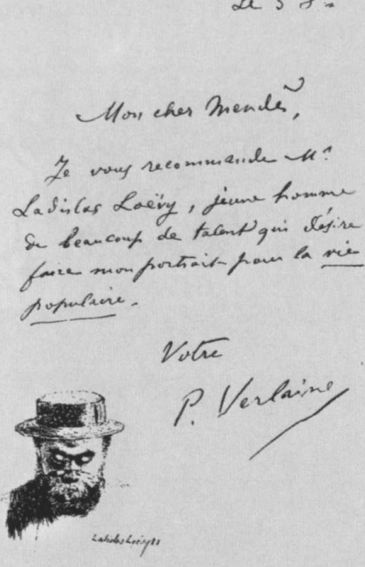 Le
Mon cher Mendès,
Je vous recommande Mr.
Ladislas Loëvy, jeune homme
de beaucoup de talent qui désire
faire mon portrait pour la vie
populaire.
Votre
P. Verlaine